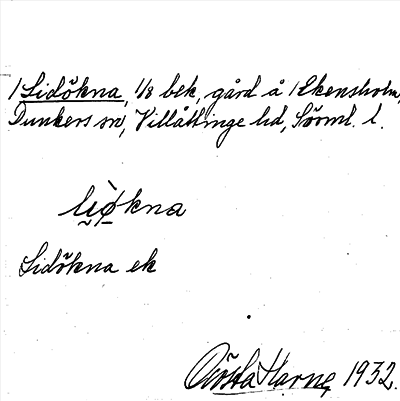 1 Lidökna, 1/8 bek, gård å 1 Ekensholm,
Dunkers sn, Villåttinge hd, Söml. l.
lìøkna
Lidökna ek
Gösta Harne 1932.